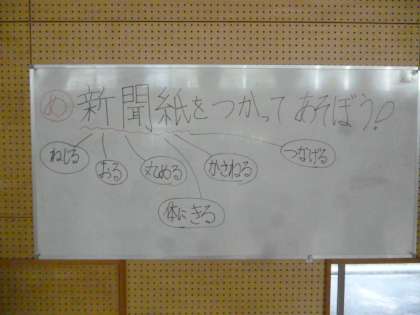 め 新聞紙をつかってあそぼう！
ねじる おる 丸める かさねる つなげる
体にきる